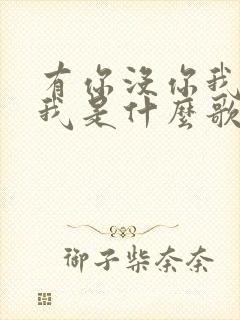 有你没你我
我是什麼歌
御子柴奈奈